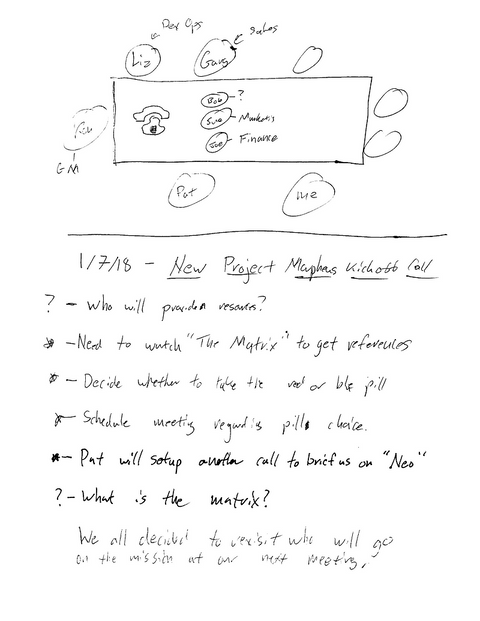 Dev Ops
Sales
Liz
Gary
Bob - ?
Sue - Marketing
Joe - Finance
Rob
GM
Pat
me
1/7/18 - New Project Morpheus Kickoff Call
? - Who will provide resources?
* - Need to watch "The Matrix" to get references
* - Decide whether to take the red or blue pill
* - Schedule meeting regarding pill choice.
* - Pat will setup another call to brief us on "Neo"
? - What is the matrix?
We all decided to revisit who will go
on the mission at our next meeting.